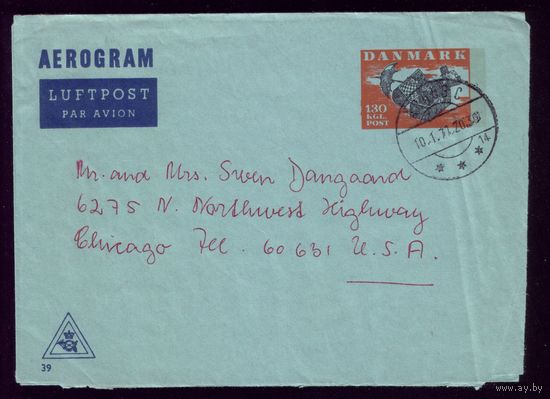 AEROGRAM
LUFTPOST
PAR AVION
DANMARK
130
KGL.
POST
C
10.1.71.20
14
Mr. and Mrs. Swen Dangaard
6275 N. Northwest Highway
Chicago Ill. 60631 U.S.A.
39
www.ay.by